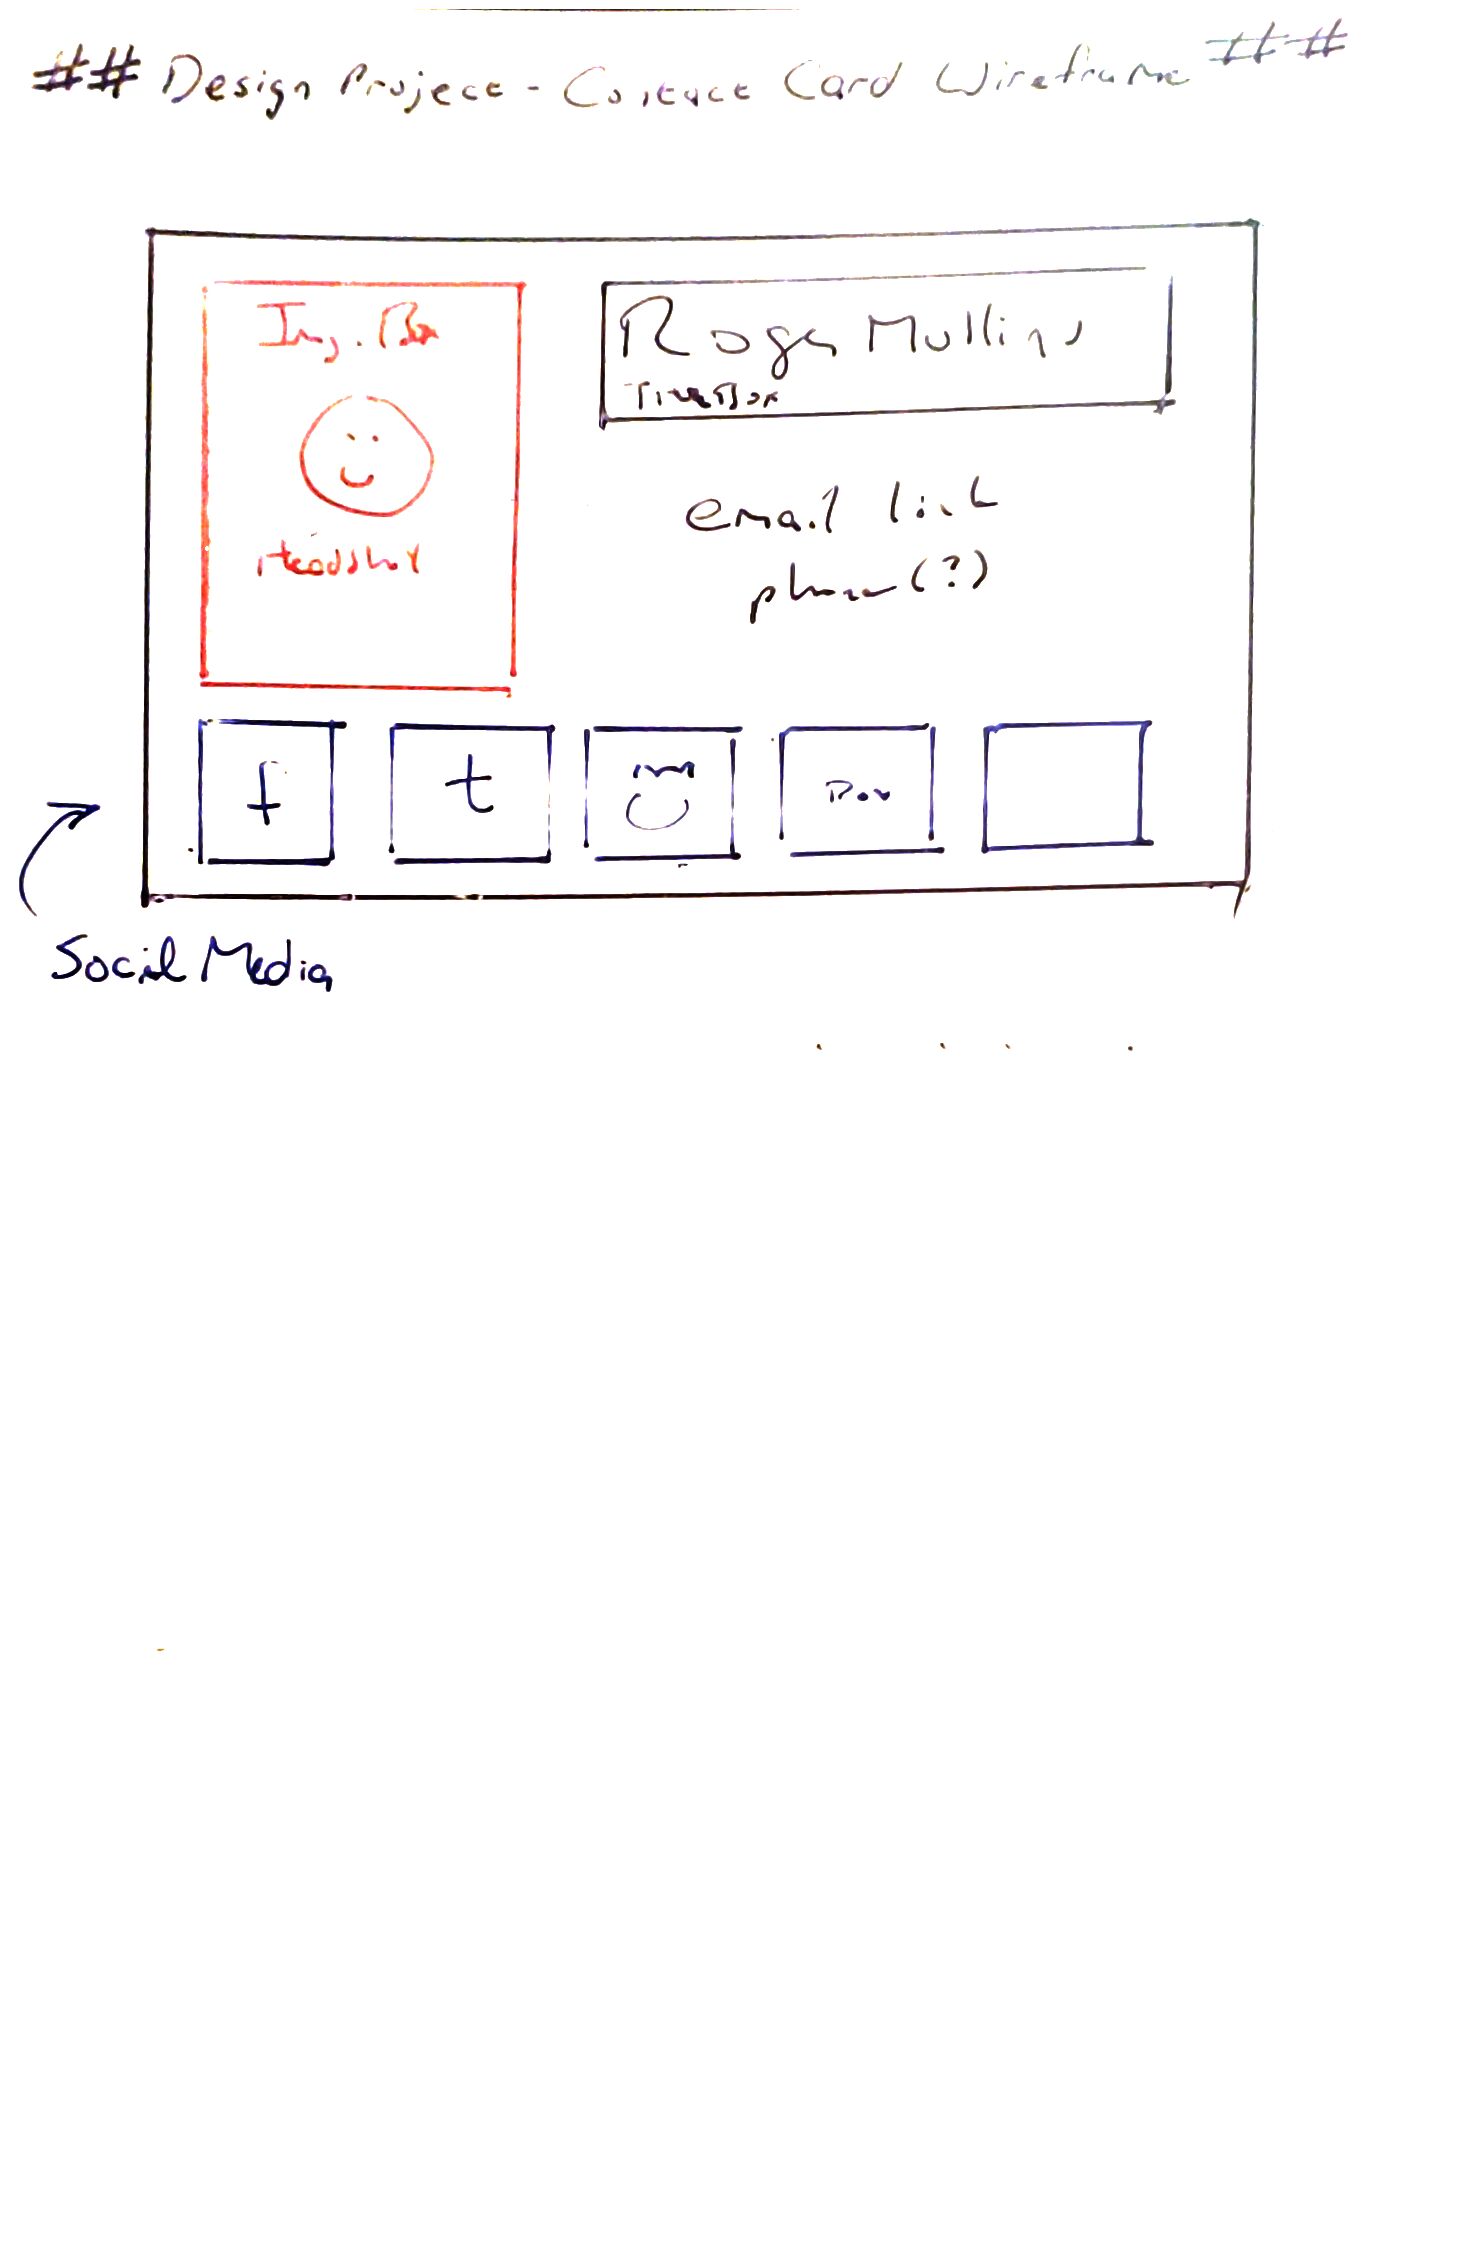 ## Design Project - Contact Card Wireframe ##
Img. Box
Headshot
Roger Mullins
Title Box
email link
phone (?)
f
t
Social Media